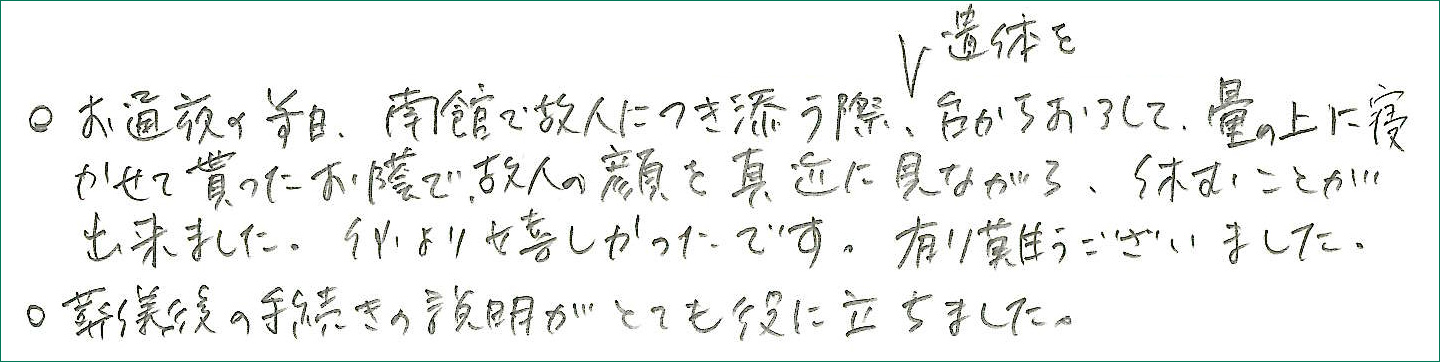 遺体を
○ お通夜の前日、南館で故人につき添う際、台からおろして、畳の上に寝
かせて貰ったお蔭で、故人の顔を真近に見ながら、休むことが
出来ました。何より嬉しかったです。有り難うございました。
○ 葬儀後の手続きの説明がとても役に立ちました。